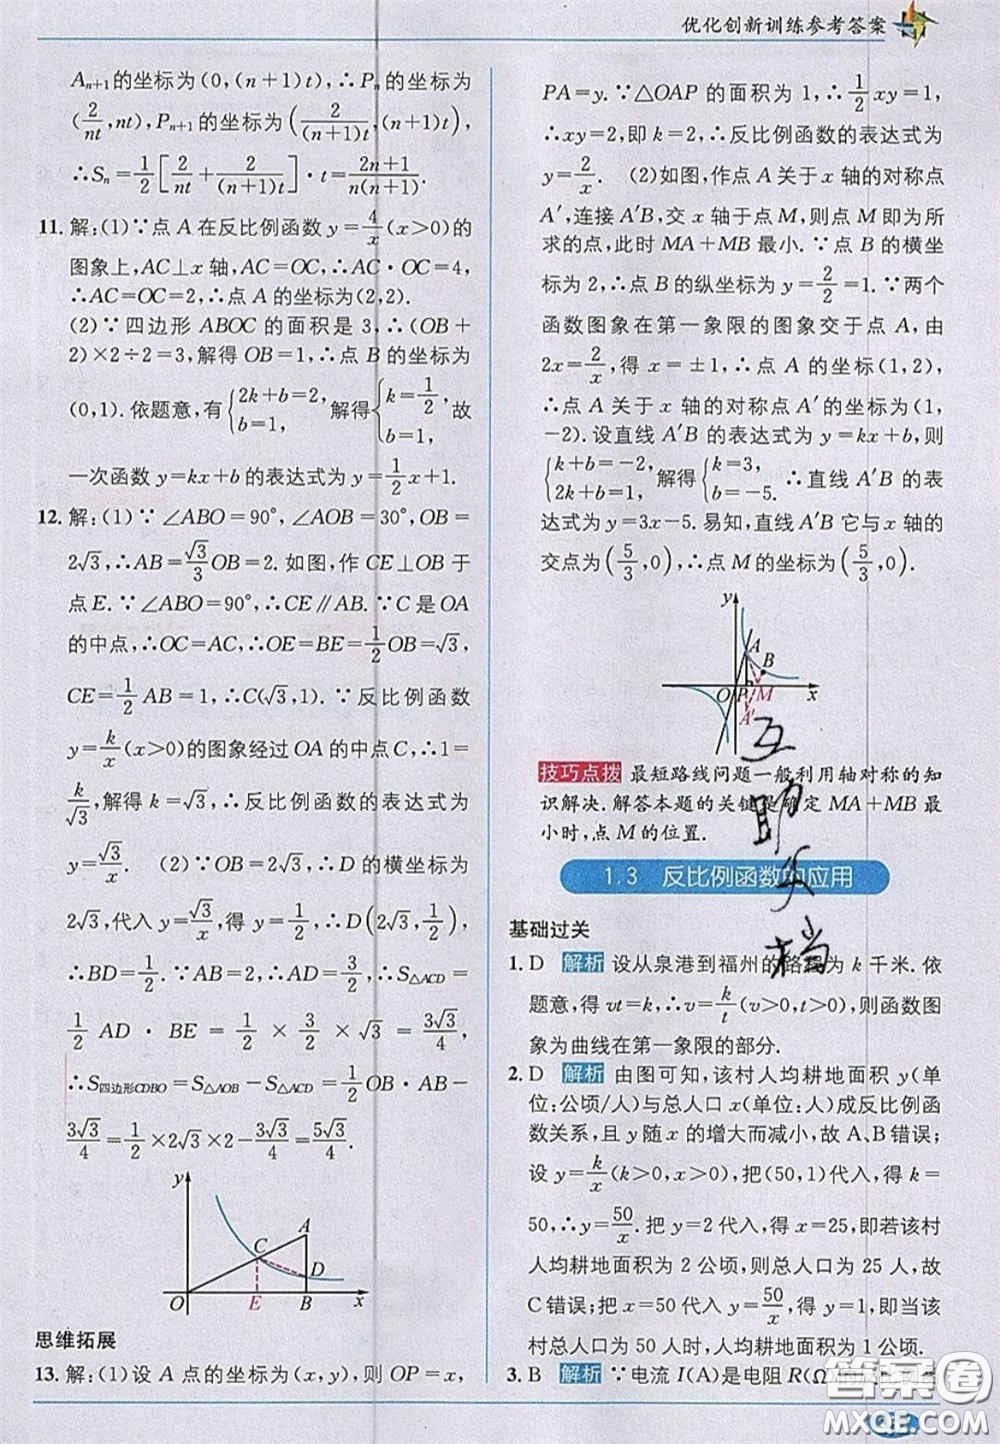 优化创新训练参考答案
Aₙ₊₁的坐标为(0,(n+1)t),∴Pₙ的坐标为
(2/nt,nt),Pₙ₊₁的坐标为(2/(n+1)t,(n+1)t),
∴Sₙ=1/2[2/nt+2/(n+1)t]·t=2n+1/n(n+1).
11. 解:(1)∵点A在反比例函数y=4/x(x>0)的
图象上,AC⊥x轴,AC=OC,∴AC·OC=4,
∴AC=OC=2,∴点A的坐标为(2,2).
(2)∵四边形ABOC的面积是3,∴(OB+
2)×2÷2=3,解得OB=1,∴点B的坐标为
(0,1).依题意,有{2k+b=2, b=1, 解得{k=1/2, b=1, 故
一次函数y=kx+b的表达式为y=1/2x+1.
12. 解:(1)∵∠ABO=90°,∠AOB=30°,OB=
2√3,∴AB=√3/3OB=2. 如图,作CE⊥OB于
点E.∵∠ABO=90°,∴CE∥AB.∵C是OA
的中点,∴OC=AC,∴OE=BE=1/2OB=√3,
CE=1/2AB=1,∴C(√3,1).∵反比例函数
y=k/x(x>0)的图象经过OA的中点C,∴1=
k/√3,解得k=√3,∴反比例函数的表达式为
y=√3/x. (2)∵OB=2√3,∴D的横坐标为
2√3,代入y=√3/x,得y=1/2,∴D(2√3,1/2),
∴BD=1/2.∵AB=2,∴AD=3/2,∴S△ACD=
1/2AD·BE=1/2×3/2×√3=3√3/4,
∴S四边形CDBO=S△AOB-S△ACD=1/2OB·AB-
3√3/4=1/2×2√3×2-3√3/4=5√3/4.
y
A
C
D
O
E
B
x
思维拓展
13. 解:(1)设A点的坐标为(x,y),则OP=x,
PA=y.∵△OAP的面积为1,∴1/2xy=1,
∴xy=2,即k=2,∴反比例函数的表达式为
y=2/x. (2)如图,作点A关于x轴的对称点
A′,连接A′B,交x轴于点M,则点M即为所
求的点,此时MA+MB最小.∵点B的横坐
标为2,∴点B的纵坐标为y=2/2=1.∵两个
函数图象在第一象限的图象交于点A,由
2x=2/x,得x=±1,∴点A的坐标(1,2),
∴点A关于x轴的对称点A′的坐标为(1,
-2).设直线A′B的表达式为y=kx+b,则
{k+b=-2, 2k+b=1, 解得{k=3, b=-5. ∴直线A′B的表
达式为y=3x-5.易知,直线A′B它与x轴的
交点为(5/3,0),∴点M的坐标为(5/3,0).
y
A
B
O
P
M
x
A′
技巧点拨 最短路线问题一般利用轴对称的知
识解决.解答本题的关键是确定MA+MB最
小时,点M的位置.
互助文档
1.3 反比例函数的应用
基础过关
1. D 解析 设从泉港到福州的路程为k千米.依
题意,得vt=k,∴v=k/t(v>0,t>0),则函数图
象为曲线在第一象限的部分.
2. D 解析 由图可知,该村人均耕地面积y(单
位:公顷/人)与总人口x(单位:人)成反比例函
数关系,且y随x的增大而减小,故A、B错误;
设y=k/x(k>0,x>0),把(50,1)代入,得k=
50,∴y=50/x.把y=2代入,得x=25,即若该村
人均耕地面积为2公顷,则总人口为25人,故
C错误;把x=50代入y=50/x,得y=1,即当该
村总人口为50人时,人均耕地面积为1公顷.
3. B 解析 ∵电流I(A)是电阻R(Ω
答案圈
MXQE.COM